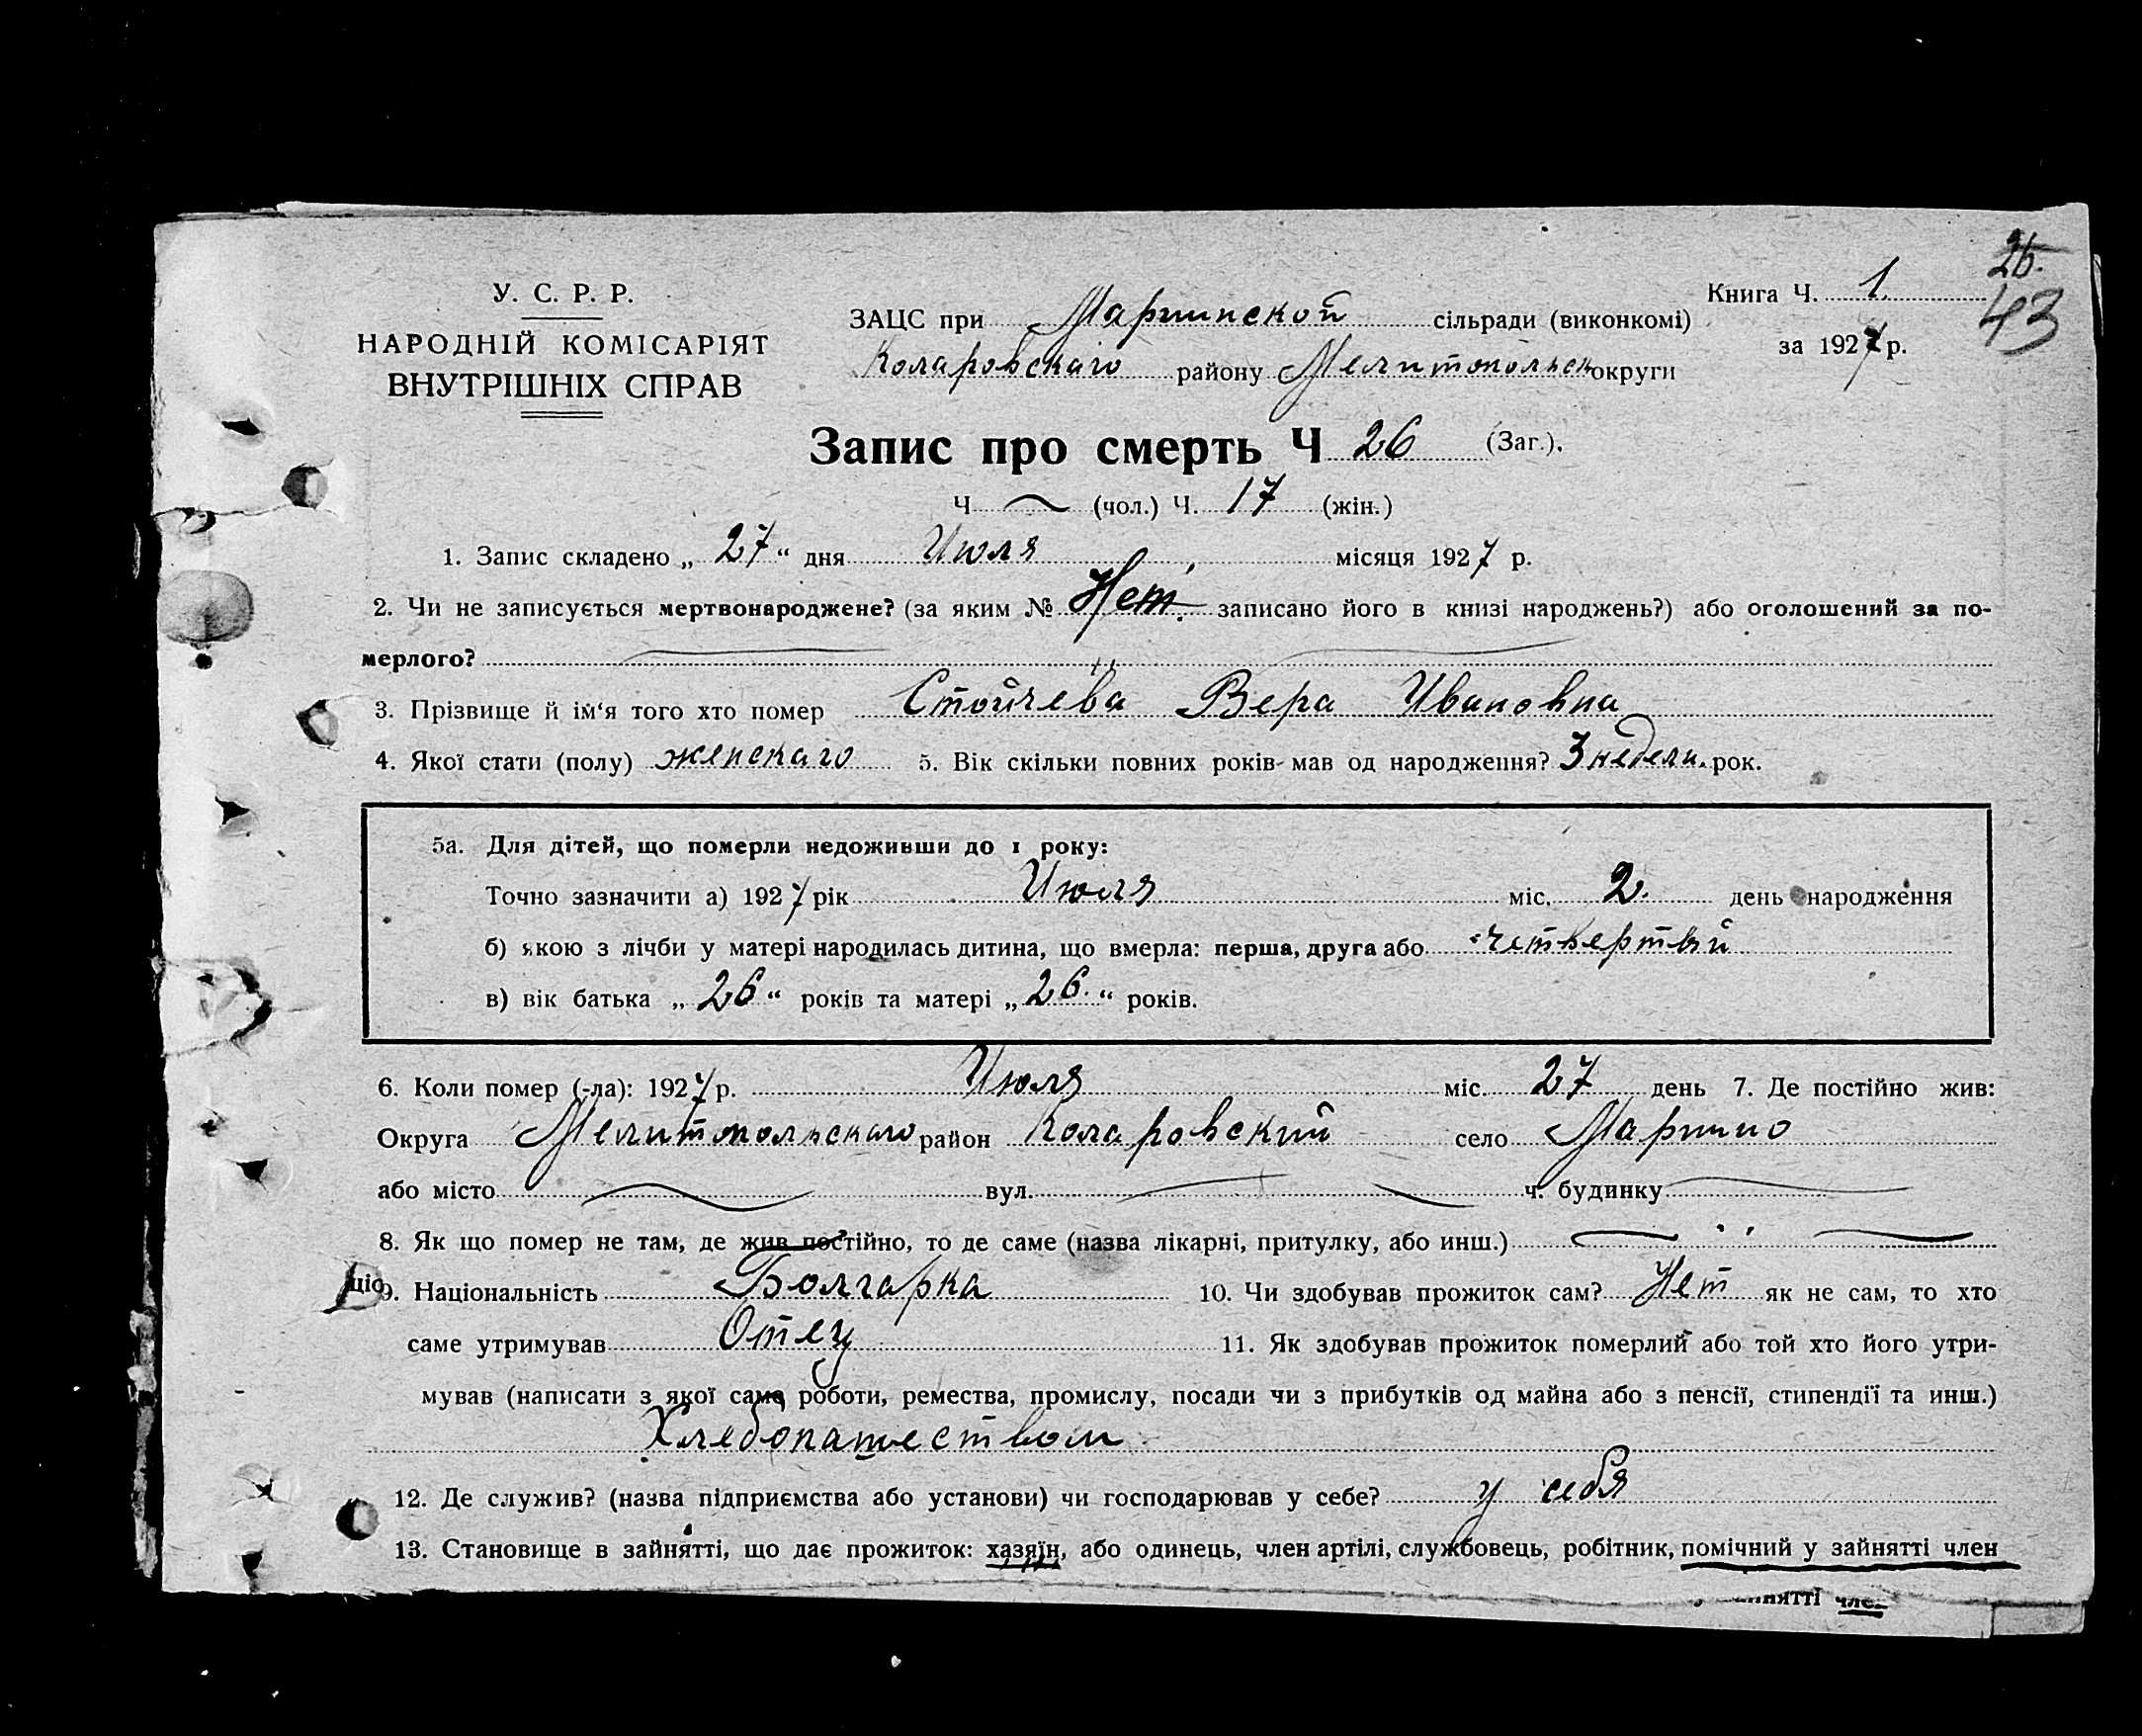 25.
У. С. Р. Р.
НАРОДНІЙ КОМІСАРІЯТ
ВНУТРІШНІХ СПРАВ
ЗАЦС при Мариинской сільради (виконкомі)
Коларовскаго району Мелитопольск округи
Книга Ч. 1.
за 1927 р.
43
Запис про смерть Ч 26 (Заг.).
Ч (чол.) Ч. 17 (жін.)
1. Запис складено „ 27 “ дня Июля місяця 1927 р.
2. Чи не записується мертвонароджене? (за яким № Нет. записано його в книзі народжень?) або оголошений за по-
мерлого?
3. Прізвище й ім‘я того хто помер Стойчева Вера Ивановна
4. Якої стати (полу) женскаго 5. Вік скільки повних років мав од народження? 3 недели. рок.
5а. Для дітей, що померли недоживши до 1 року:
Точно зазначити а) 1927 рік Июля міс. 2. день народження
б) якою з лічби у матері народилась дитина, що вмерла: перша, друга або четвертый
в) вік батька „ 26 “ років та матері „ 26. “ років.
6. Коли помер (-ла): 1927 р. Июля міс. 27 день 7. Де постійно жив:
Округа Мелитопольскаго район Коларовский село Марино
або місто вул. ч. будинку
8. Як що помер не там, де жив постійно, то де саме (назва лікарні, притулку, або инш.)
ціо
9. Національність Болгарка 10. Чи здобував прожиток сам? Нет як не сам, то хто
саме утримував Отец 11. Як здобував прожиток померлий або той хто його утри-
мував (написати з якої саме роботи, ремества, промислу, посади чи з прибутків од майна або з пенсії, стипендії та инш.)
Хлебопашеством
12. Де служив? (назва підприємства або установи) чи господарював у себе? у себя
13. Становище в зайнятті, що дає прожиток: хазяїн, або одинець, член артілі, службовець, робітник, помічний у зайнятті член